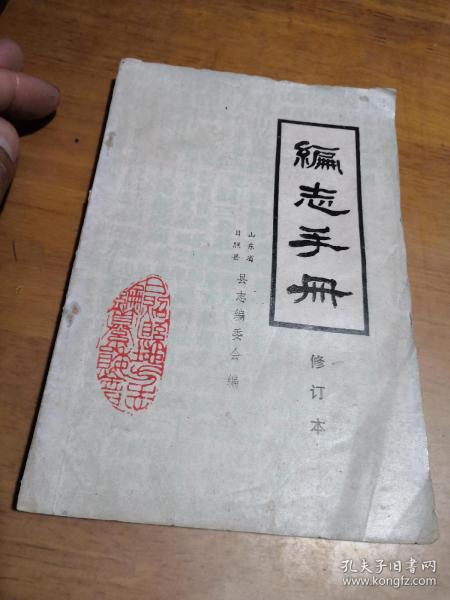 编志手册
修订本
山东省
日照县
县志编委会编
孔夫子旧书网
www.kongfz.com